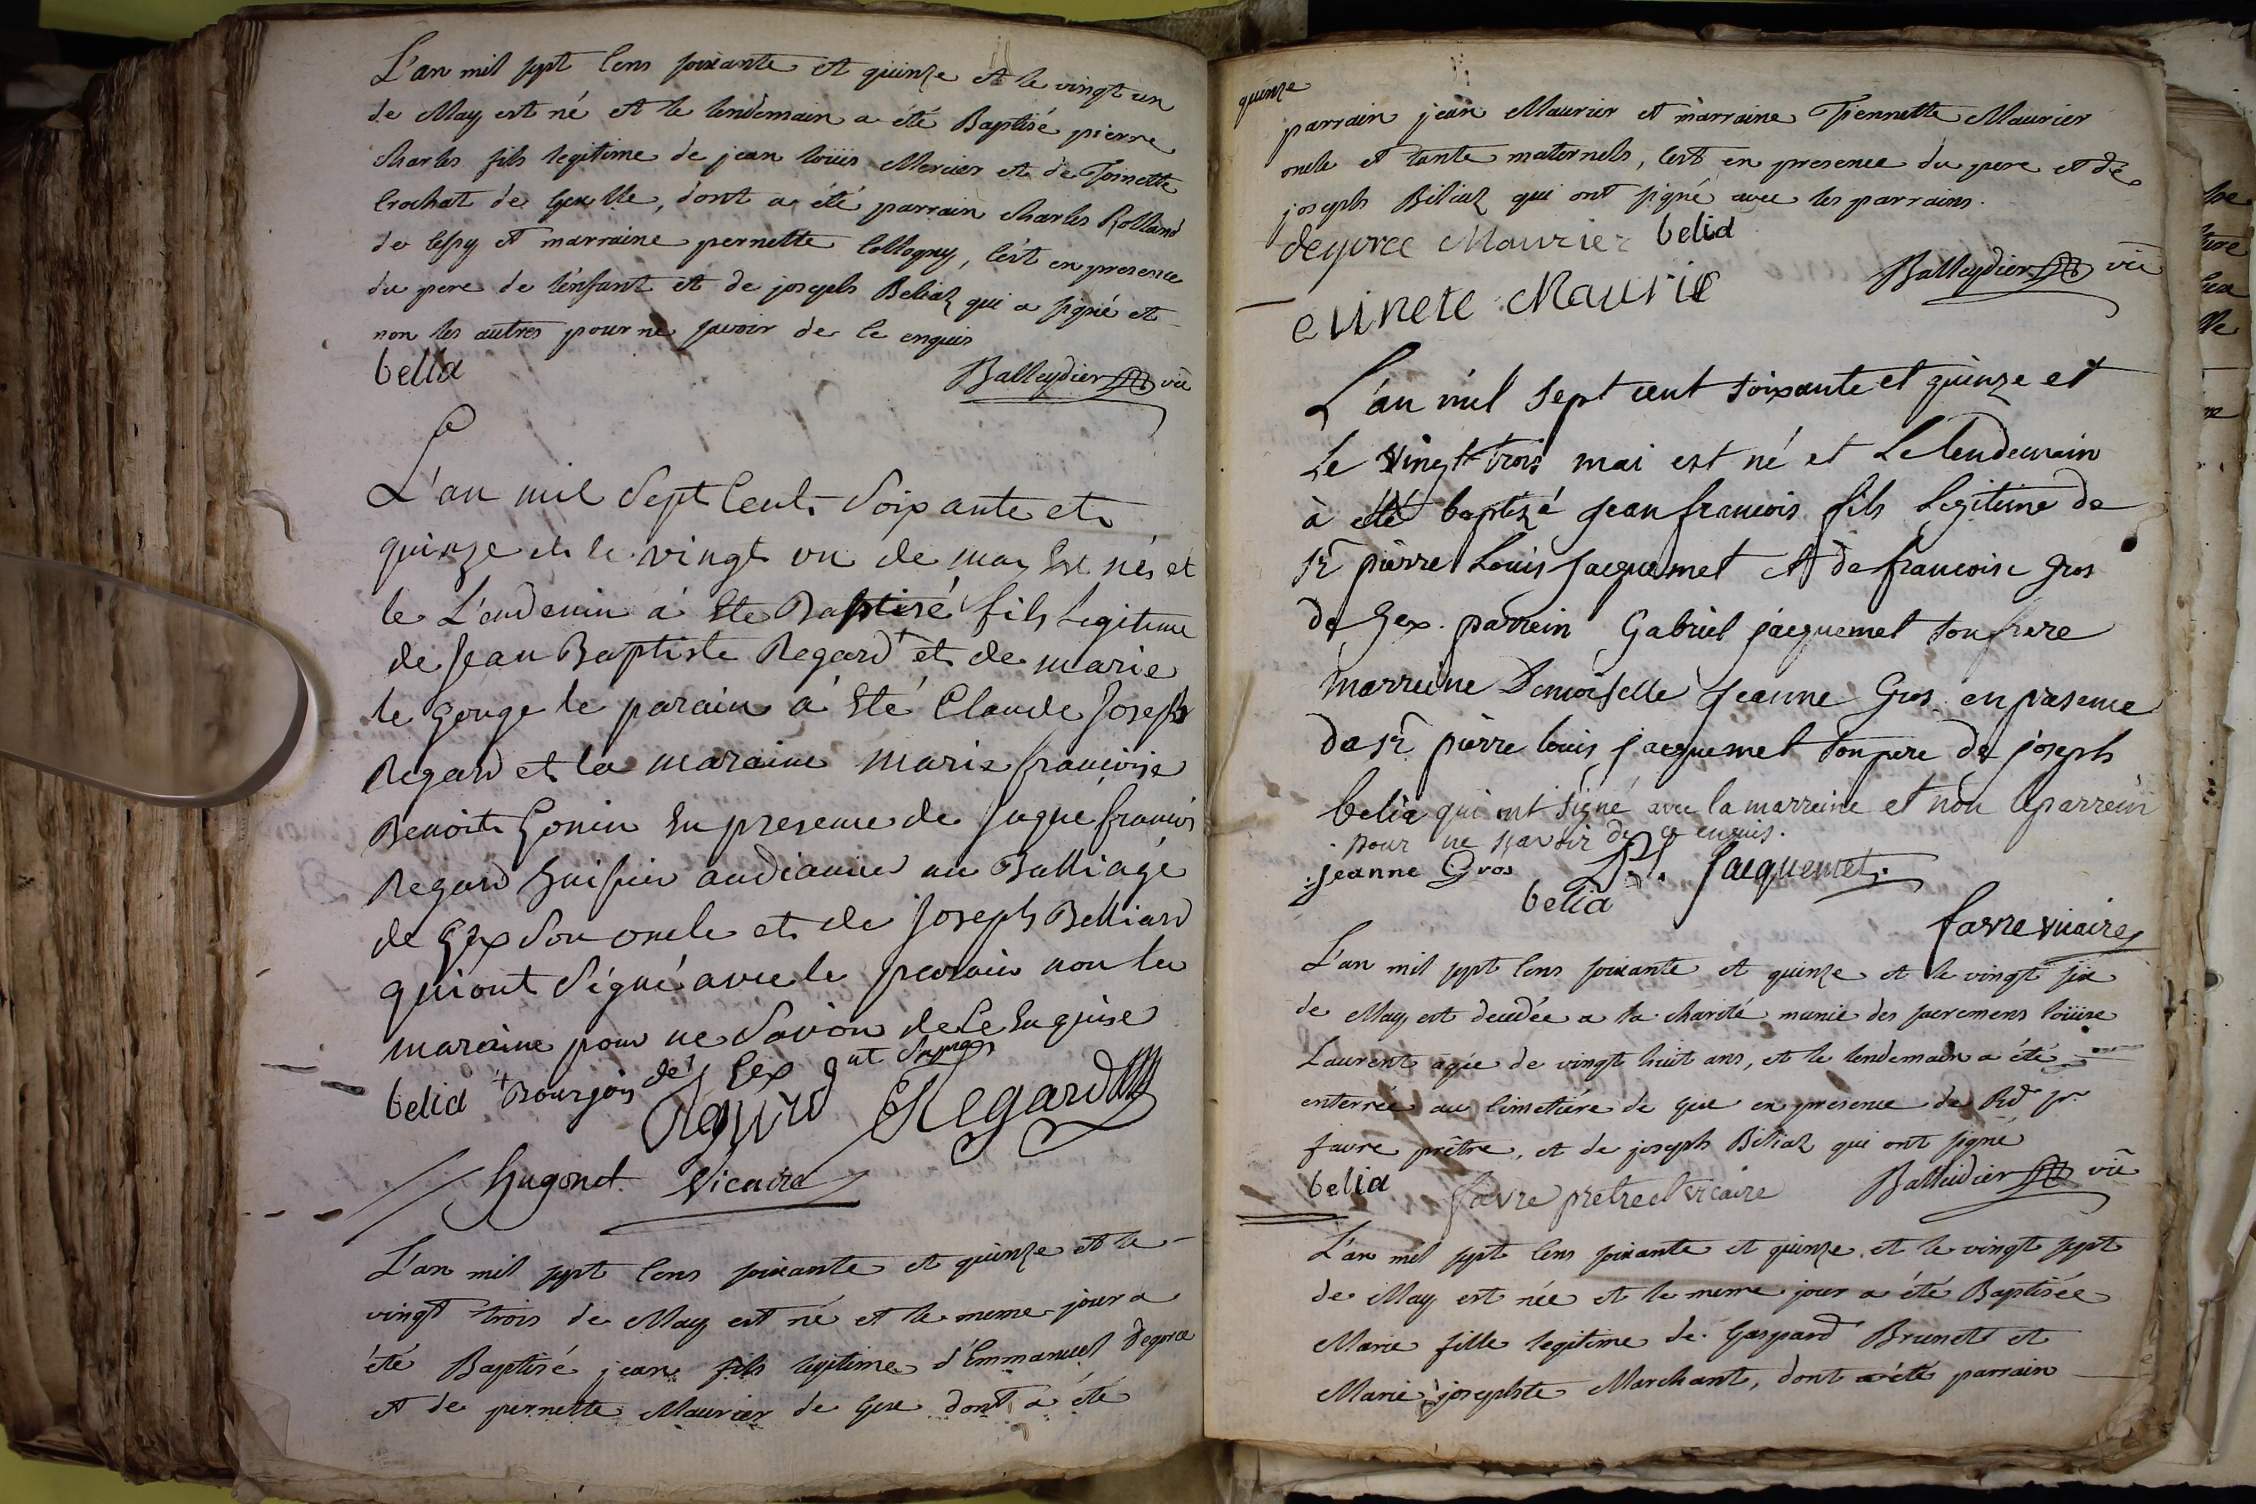 L'an mil sept cens soixante et quinze et le vingt un
de May est né et le lendemain a été Baptisé pierre
charles fils legitime de jean loüis Mercier et de Tonnette
Crochat de , dont a été parrain charles Rolland
de Cessy et marraine pernette Collogny, c'est en presence
du pere de l'enfant et de joseph Beliaz qui a signé et
non les autres pour ne savoir de ce enquis
belia Balleydier vic
L'an mil Sept Cent Soixante et
quinze et le vingt un de may Est nés et
le L'endemin a Ete Baptisé fils Legitime
de Jean Baptiste Regard + et de marie
le gouge le parain a Eté Claude Joseph
Regard et la maraine marie françoise
Benoite Gonin En presence de françois
Regard huissier audiancier au Balliage
de Gex Son oncle et de Joseph Belliard
qui ontSégné avec le parain non la
maraine pour ne Savoir de Ce Enquise
belia + Bourgois de Gex
Regard Regard
Hugonet Vicaire
L'an mil sept cens soixante et quinze et le
vingt trois de May est né et le meme jour a
été Baptisé jean fils legitime d'Emmanuel Degorce
et de pernette Maurier de Gex dont a été
quinze
parrain jean Maurier et marraine Piennette Maurier
oncle et tante maternels, c'est en presence du pere et de
joseph Béliaz qui ont signé avec les parrains.
degorce Maurier belia
Balleydier vic
Maurie
L'an mil Sept cent soixante et quinze et
Le vingt trois mai est né et Le lendemain
à eté baptizé jean francois fils Legitime de
Sr pierre Louis Jacquemet et de francoise gros
de Gex. parrein Gabriel jacquemet son frere
marreine Demoiselle jeanne Gros en presence
de Sr pierre louis jacquemet son pere de joseph
belia qui ont signé avec la marreine et non le parrein
pour ne savoir de ce enquis.
jeanne Gros P. L. Jacquemet.
belia
favre vicaire
L'an mil sept cens soixante et quinze et le vingt six
de May est decedée a la charité munie des sacremens loüise
Laurent agée de vingt huit ans, et le lendemain a été
enterrée au Cimetiére de Gex en presence de Rd sr
favre prêtre, et de joseph Béliaz qui ont signé
belia favre pretre et vicaire Balleidier vic
L'an mil sept cens soixante et quinze et le vingt sept
de May est née et le meme jour a été Baptisée
Marie fille legitime de Gaspard Brunet et
Marie josephte Marchant, dont a été parrain